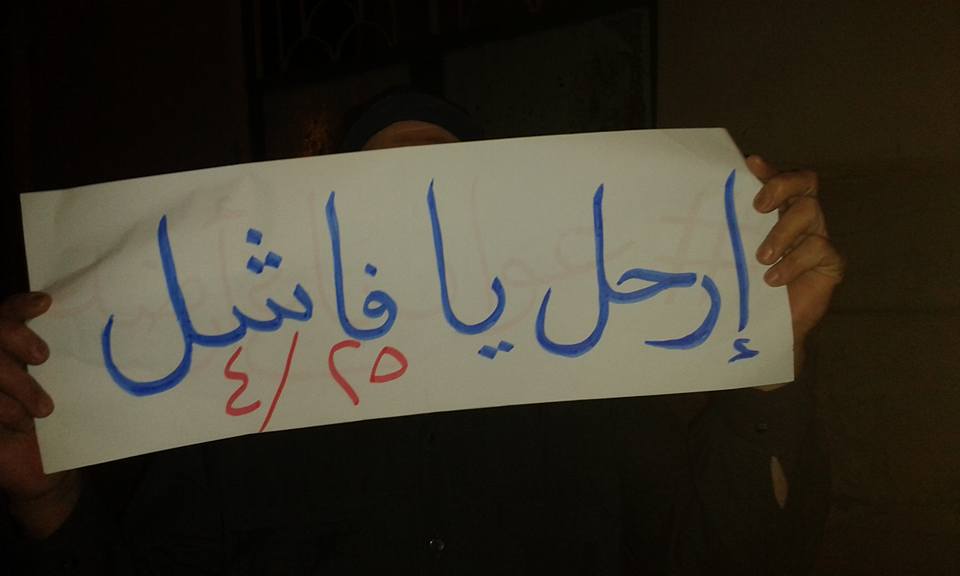 إرحل يا فاشل
٢٥/٤